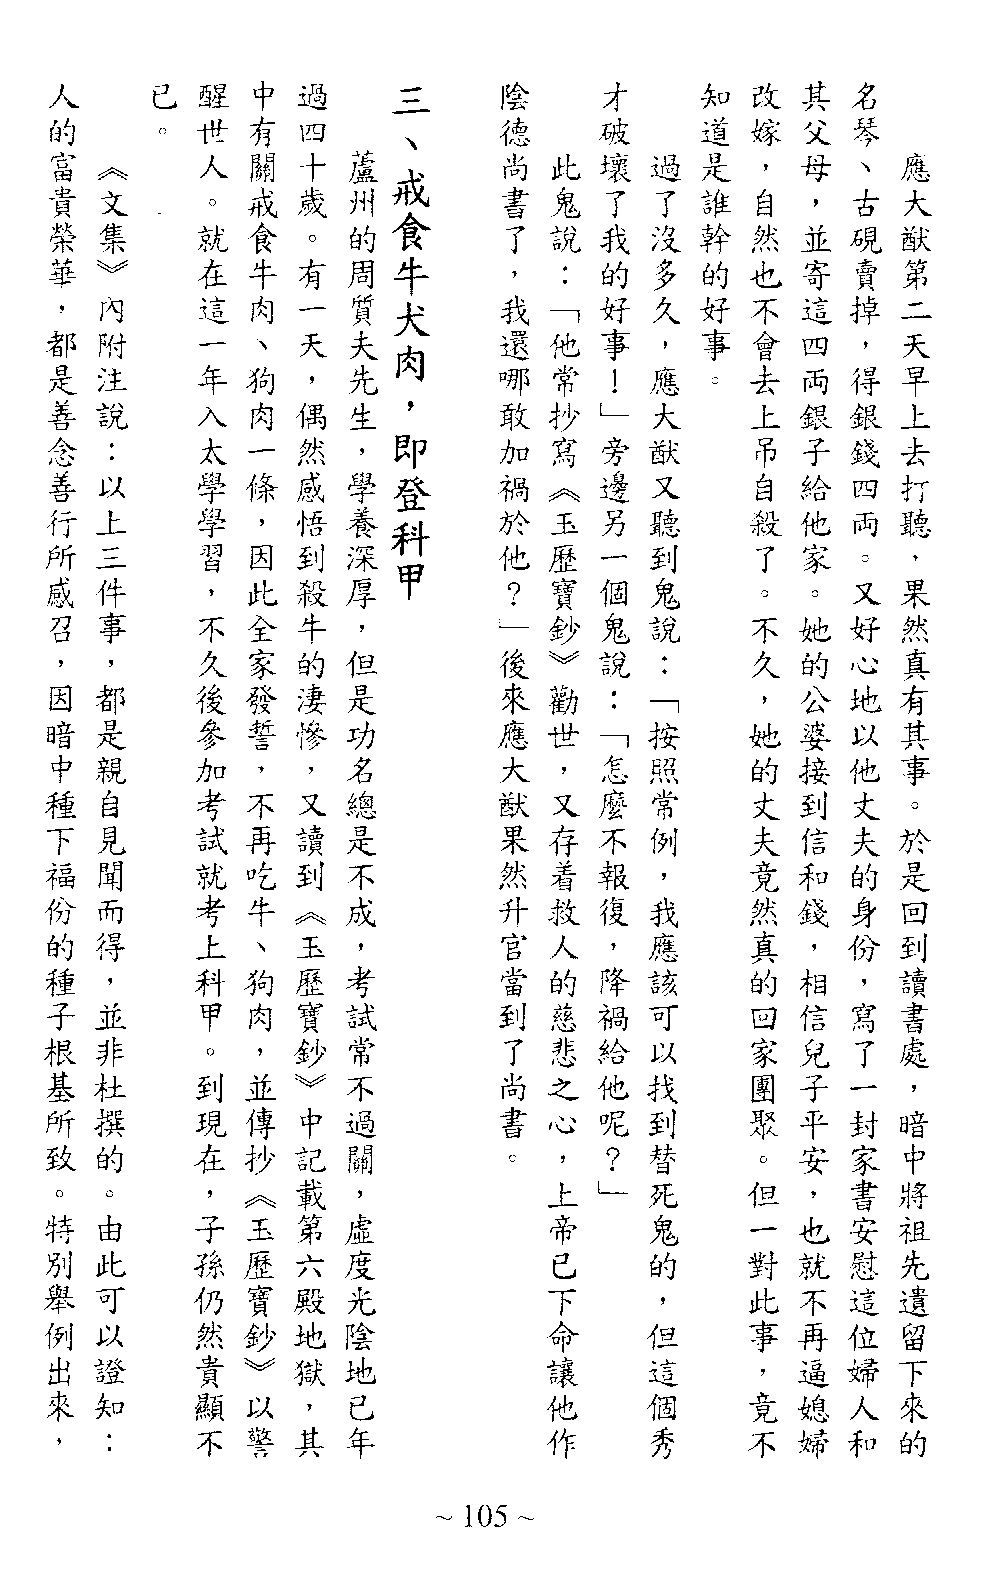 應大猷第二天早上去打聽，果然真有其事。於是回到讀書處，暗中將祖先遺留下來的
名琴、古硯賣掉，得銀錢四両。又好心地以他丈夫的身份，寫了一封家書安慰這位婦人和
其父母，並寄這四両銀子給他家。她的公婆接到信和錢，相信兒子平安，也就不再逼媳婦
改嫁，自然也不會去上吊自殺了。不久，她的丈夫竟然真的回家團聚。但一對此事，竟不
知道是誰幹的好事。
過了沒多久，應大猷又聽到鬼說：「按照常例，我應該可以找到替死鬼的，但這個秀
才破壞了我的好事！」旁邊另一個鬼說：「怎麼不報復，降禍給他呢？」
此鬼說：「他常抄寫《玉歷寶鈔》勸世，又存着救人的慈悲之心，上帝已下命讓他作
陰德尚書了，我還哪敢加禍於他？」後來應大猷果然升官當到了尚書。
三、戒食牛犬肉，即登科甲
蘆州的周質夫先生，學養深厚，但是功名總是不成，考試常不過關，虛度光陰地已年
過四十歲。有一天，偶然感悟到殺牛的淒慘，又讀到《玉歷寶鈔》中記載第六殿地獄，其
中有關戒食牛肉、狗肉一條，因此全家發誓，不再吃牛、狗肉，並傳抄《玉歷寶鈔》以警
醒世人。就在這一年入太學學習，不久後參加考試就考上科甲。到現在，子孫仍然貴顯不
已。
《文集》內附注說：以上三件事，都是親自見聞而得，並非杜撰的。由此可以證知：
人的富貴榮華，都是善念善行所感召，因暗中種下福份的種子根基所致。特別舉例出來，
~ 105 ~